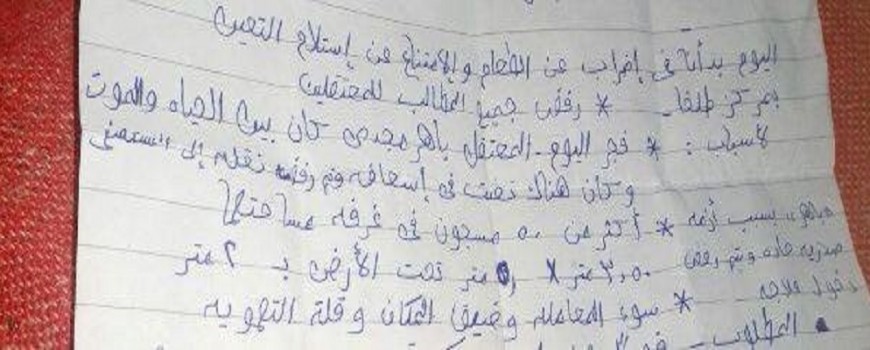 اليوم بدأنا فى إضراب عن الطعام والإمتناع عن إستلام التعيين
بمركز طلخا - * رفض جميع المطالب للمعتقلين
لأسباب : * فجر اليوم - المعتقل باهر مجدى كان بين الحياه والموت
وكان هناك تعنت فى إسعافه وتم رفض نقله إلى المستشفى
بسبب أزمه * أكثر من ٥٠ مسجون فى غرفه مساحتها
صدريه حاده وتم رفض ٣,٥٠ متر × متر تحت الأرض بـ ٢ متر
دخول علاجه * سوء المعامله وضيق المكان وقلة التهويه
المطلوب -